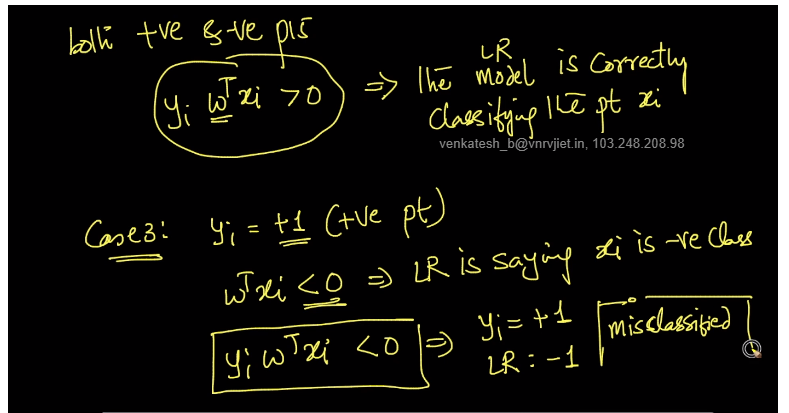 both +ve & -ve pts
yᵢ wᵀxᵢ > 0 => The LR model is correctly
classifying the pt xᵢ
venkatesh_b@vnrvjiet.in, 103.248.208.98
Case3: yᵢ = +1 (+ve pt)
wᵀxᵢ < 0 => LR is saying xᵢ is -ve class
yᵢ wᵀxᵢ < 0 => yᵢ = +1 misclassified
LR: -1